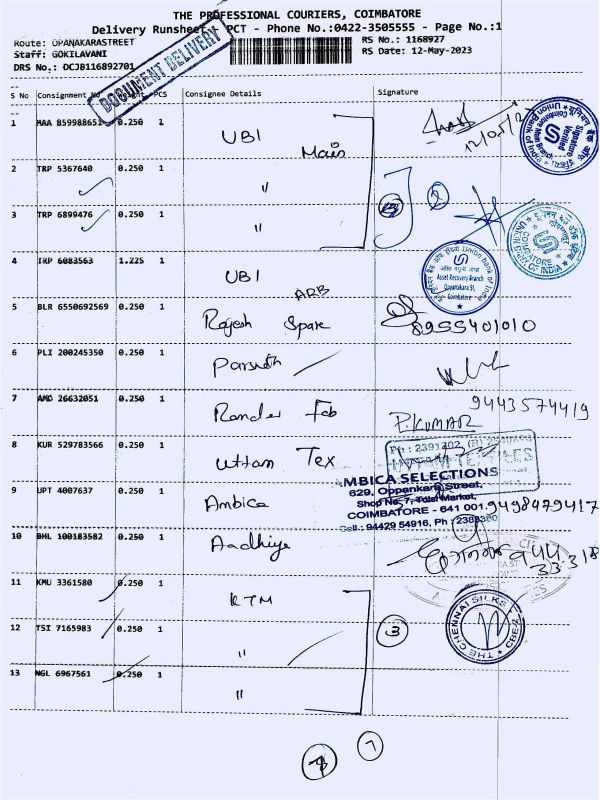 THE PROFESSIONAL COURIERS, COIMBATORE
Delivery Runsheet PCT - Phone No.:0422-3505555 - Page No.:1
Route: OPANAKARASTREET RS No.: 1168927
Staff: GOKILAVANI RS Date: 12-May-2023
DRS No.: DCJB116892701
DOCUMENT DELIVERY
S No Consignment No Weight PCS Consignee Details Signature
1 MAA 859988651 0.250 1 UBI Main 12/05/23
2 TRP 5367640 0.250 1 "
3 TRP 6899476 0.250 1 "
4 TRP 6083563 1.225 1 UBI ARB
Union bank of India
Asset Recovery Branch
Oppanakara St,
Coimbatore
UNION BANK OF INDIA
COIMBATORE
5 BLR 6550692569 0.250 1 Rajesh Spare 8955401010
6 PLI 200245350 0.250 1
7 AMD 26632051 0.250 1 Rander Fab P.KUMAR 9443574419
8 KUR 529783566 0.250 1 Uttam Tex
9 UPT 4007637 0.250 1 Ambica 9498479417
AMBICA SELECTIONS
629, Oppankara Street,
Shop No. 7, Market,
COIMBATORE - 641 001.
Cell.: 94429 54916, Ph :
10 BHL 100183502 0.250 1 Aadhiye 944 33318
11 KMU 3361580 0.250 1 KTM
12 TSI 7165983 0.250 1 " 3
13 NGL 6967561 0.250 1 "
THE CHENNAI SILKS CBE-2
7